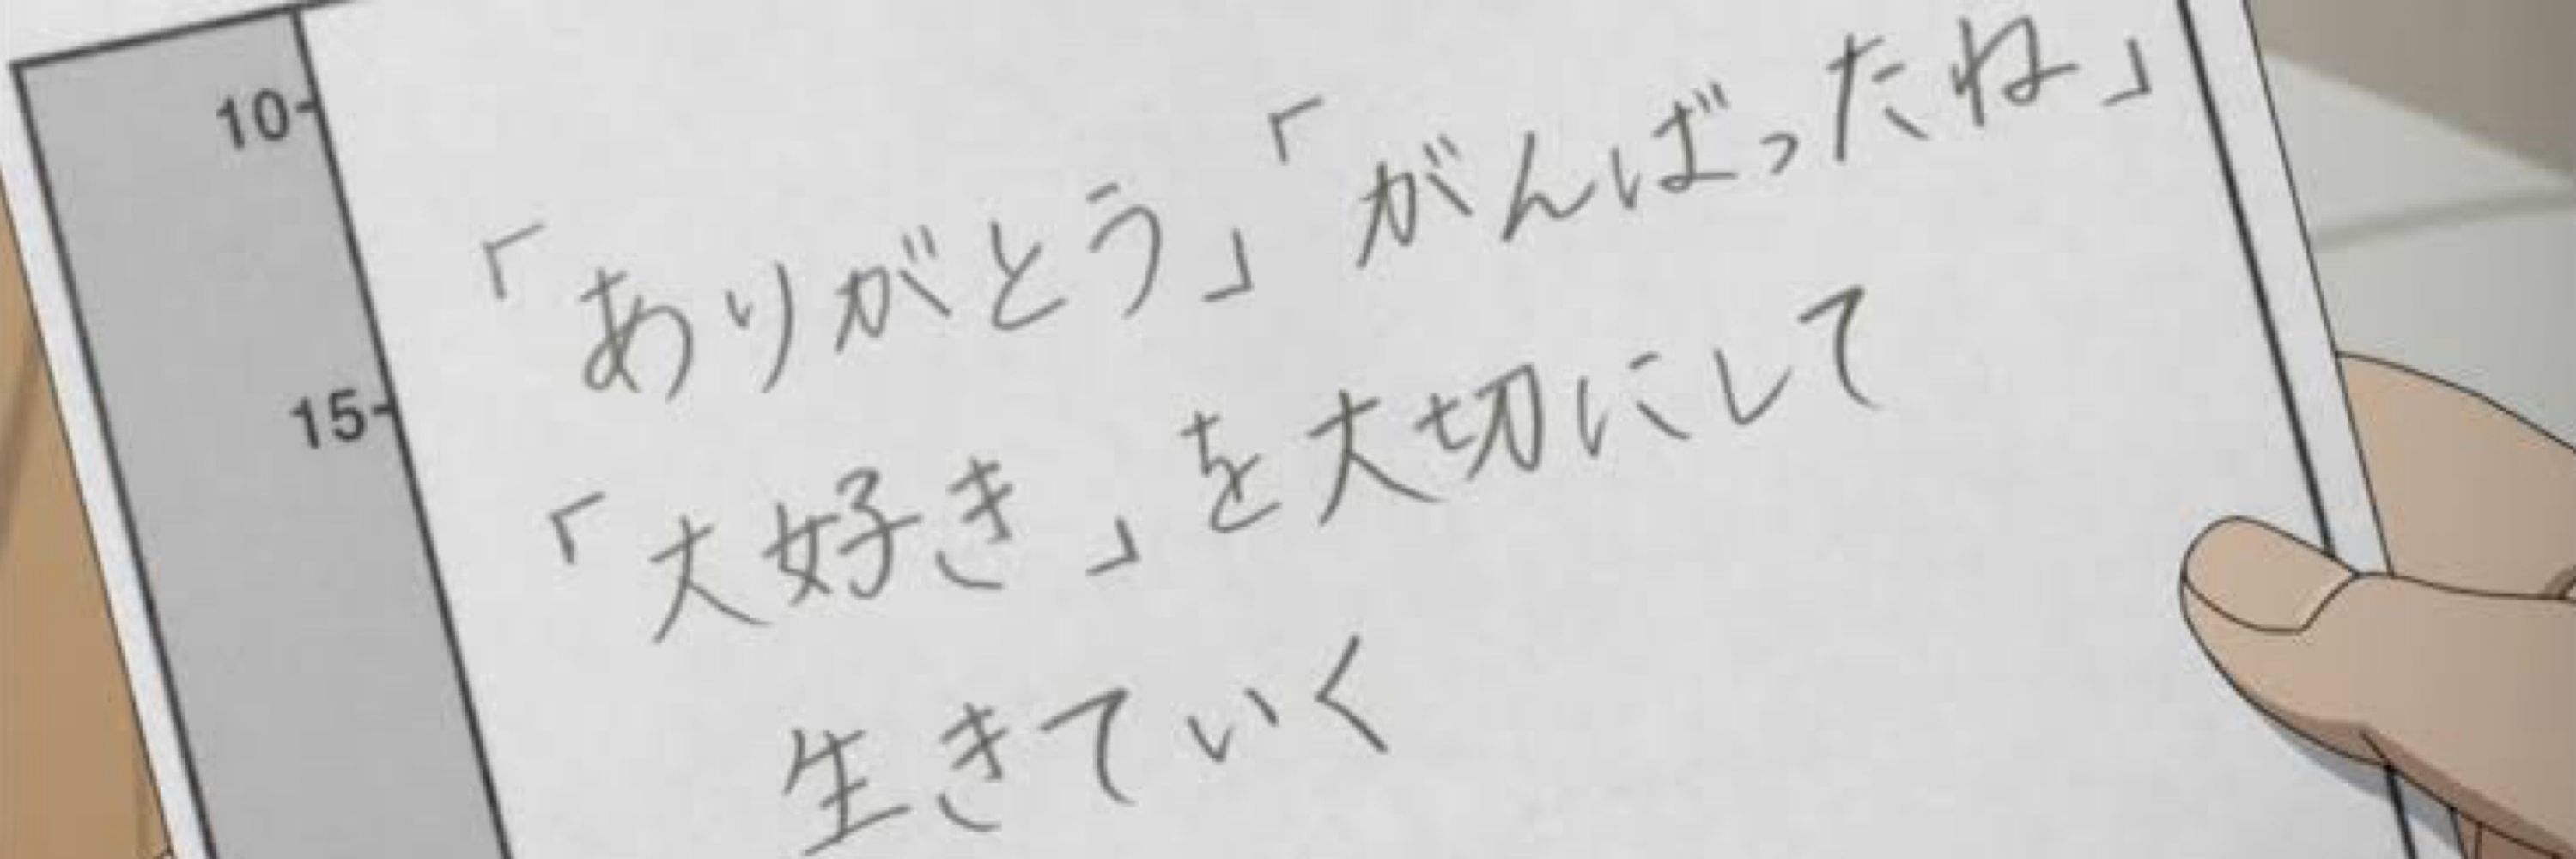 10
「ありがとう」「がんばったね」
15
「大好き」を大切にして
生きていく